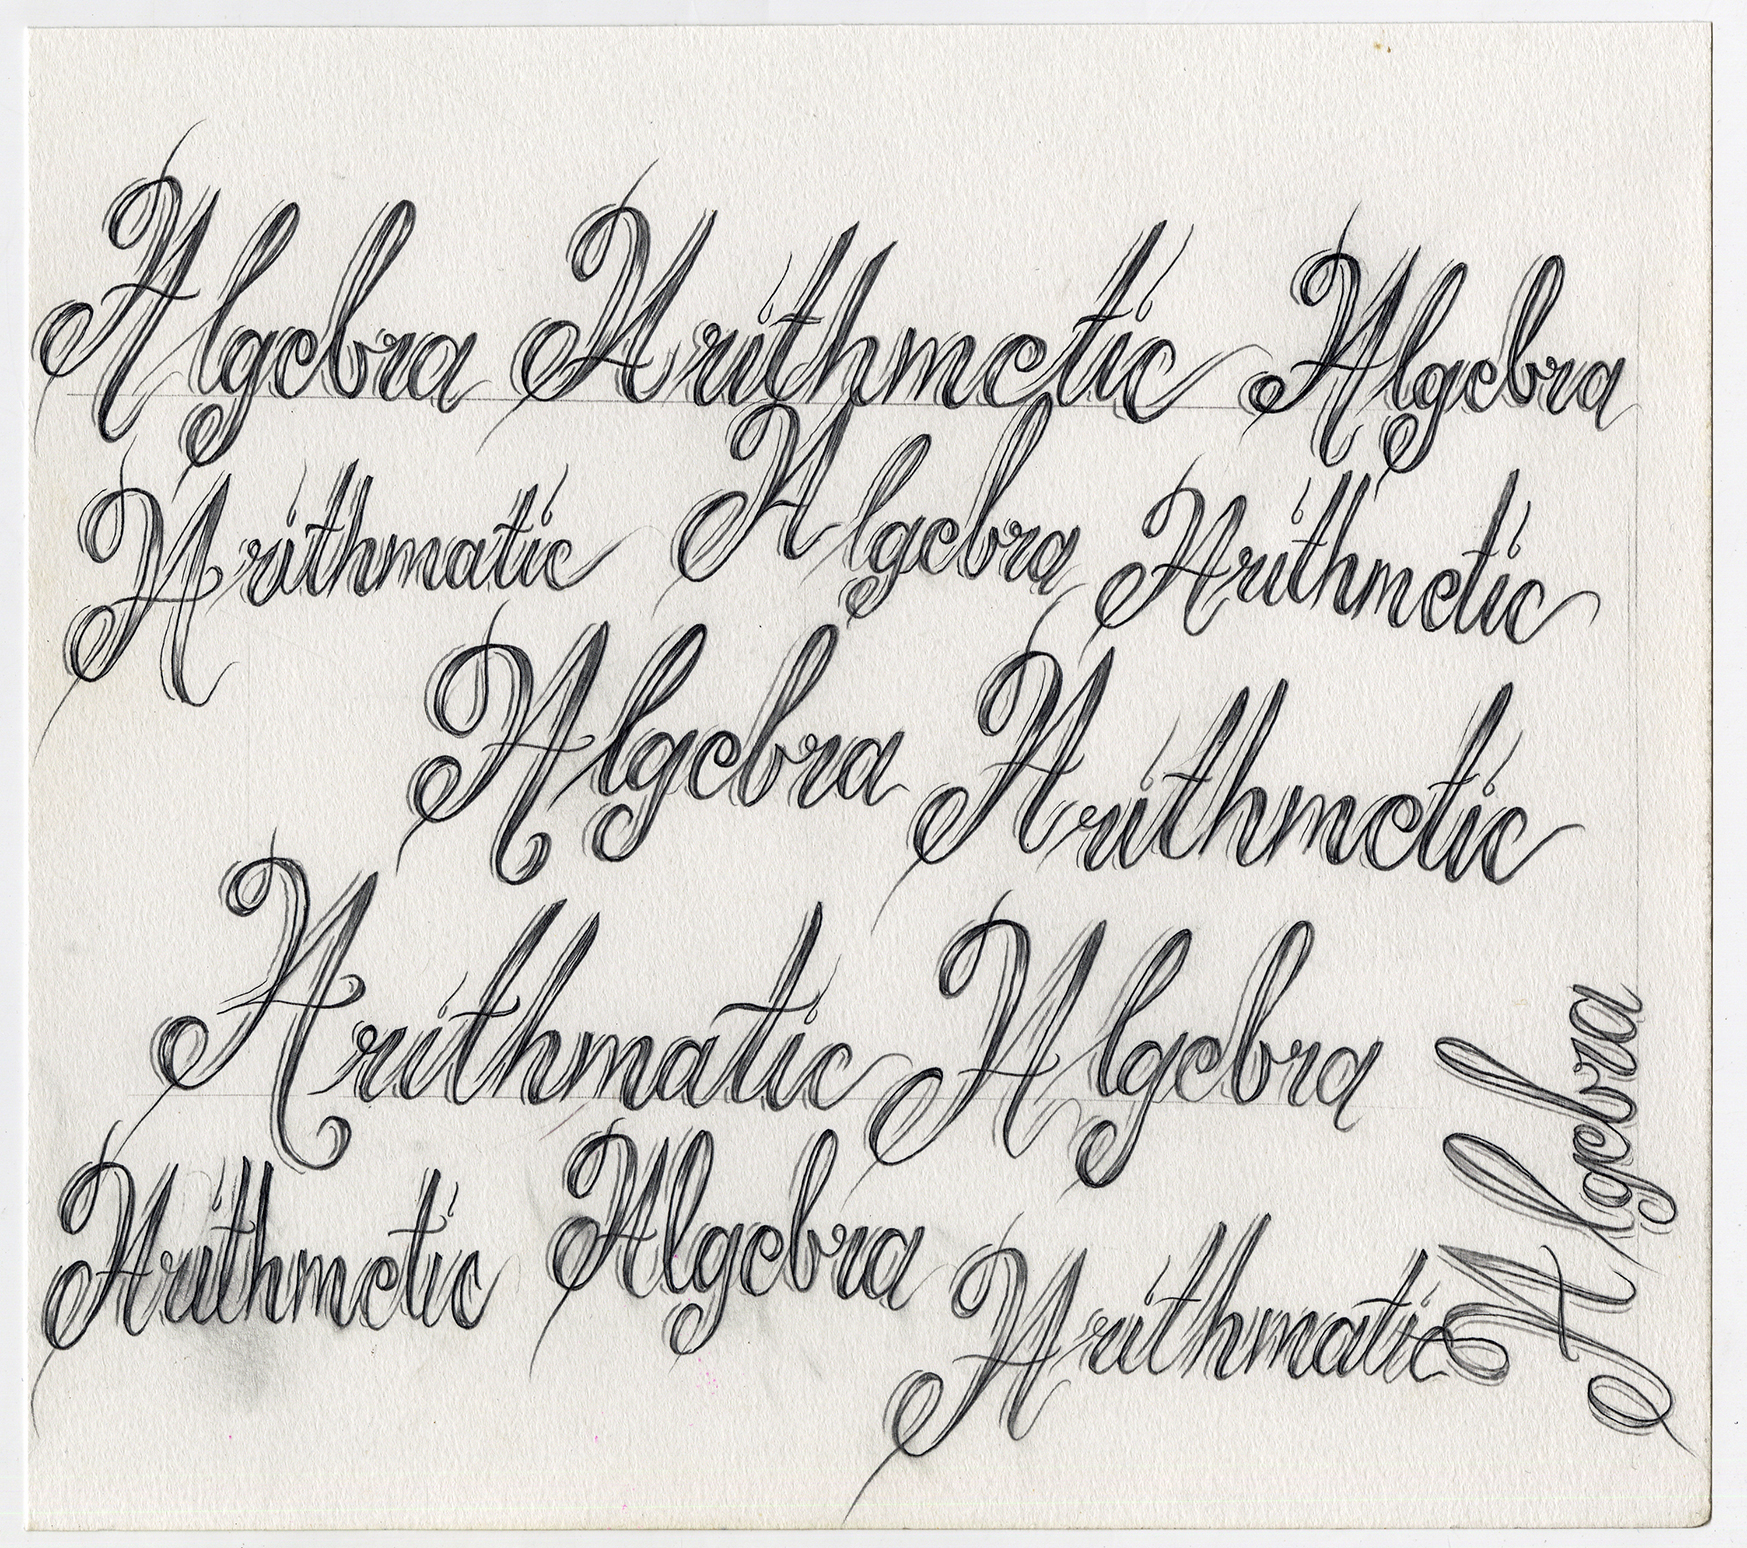 Algebra Arithmetic Algebra
Arithmatic Algebra Arithmetic
Algebra Arithmetic
Arithmatic Algebra
Arithmetic Algebra Arithmatic
Algebra